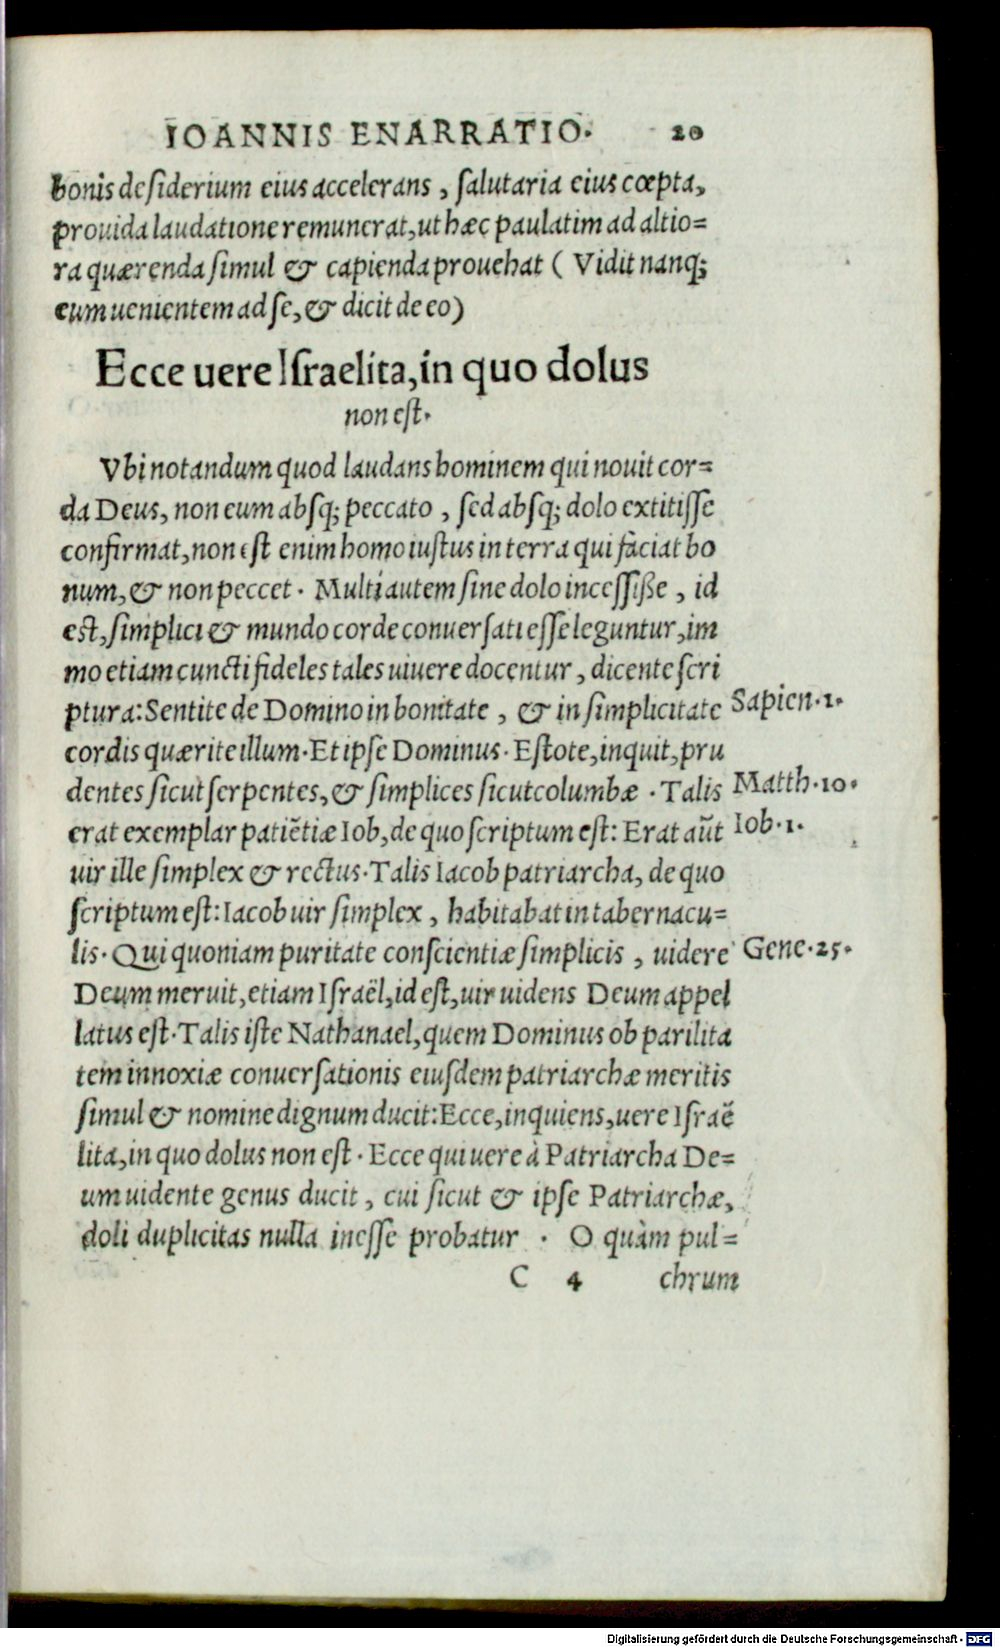 IOANNIS ENARRATIO. 20
bonis desiderium eius accelerans, salutaria eius cœpta,
prouida laudatione remunerat, ut hæc paulatim ad altio=
ra quærenda simul & capienda prouehat ( Vidit nanq;
eum uenientem ad se, & dicit de eo)
Ecce uere Israelita, in quo dolus
non est.
Vbi notandum quod laudans hominem qui nouit cor=
da Deus, non eum absq; peccato, sed absq; dolo extitisse
confirmat, non est enim homo iustus in terra qui faciat bo
num, & non peccet. Multi autem sine dolo incessisse, id
est, simplici & mundo corde conuersati esse leguntur, im
mo etiam cuncti fideles tales uiuere docentur, dicente scri
ptura: Sentite de Domino in bonitate, & in simplicitate Sapien.1.
cordis quærite illum. Et ipse Dominus. Estote, inquit, pru
dentes sicut serpentes, & simplices sicut columbæ. Talis Matth.10.
erat exemplar patiētiæ Iob, de quo scriptum est: Erat aūt Iob.1.
uir ille simplex & rectus. Talis Iacob patriarcha, de quo
scriptum est: Iacob uir simplex, habitabat in tabernacu=
lis. Qui quoniam puritate conscientiæ simplicis, uidere Gene.25.
Deum meruit, etiam Israël, id est, uir uidens Deum appel
latus est. Talis iste Nathanael, quem Dominus ob parilita
tem innoxiæ conuersationis eiusdem patriarchæ meritis
simul & nomine dignum ducit: Ecce, inquiens, uere Israë
lita, in quo dolus non est. Ecce qui uere à Patriarcha De=
um uidente genus ducit, cui sicut & ipse Patriarchæ,
doli duplicitas nulla inesse probatur. O quàm pul=
C 4 chrum
Digitalisierung gefördert durch die Deutsche Forschungsgemeinschaft - DFG